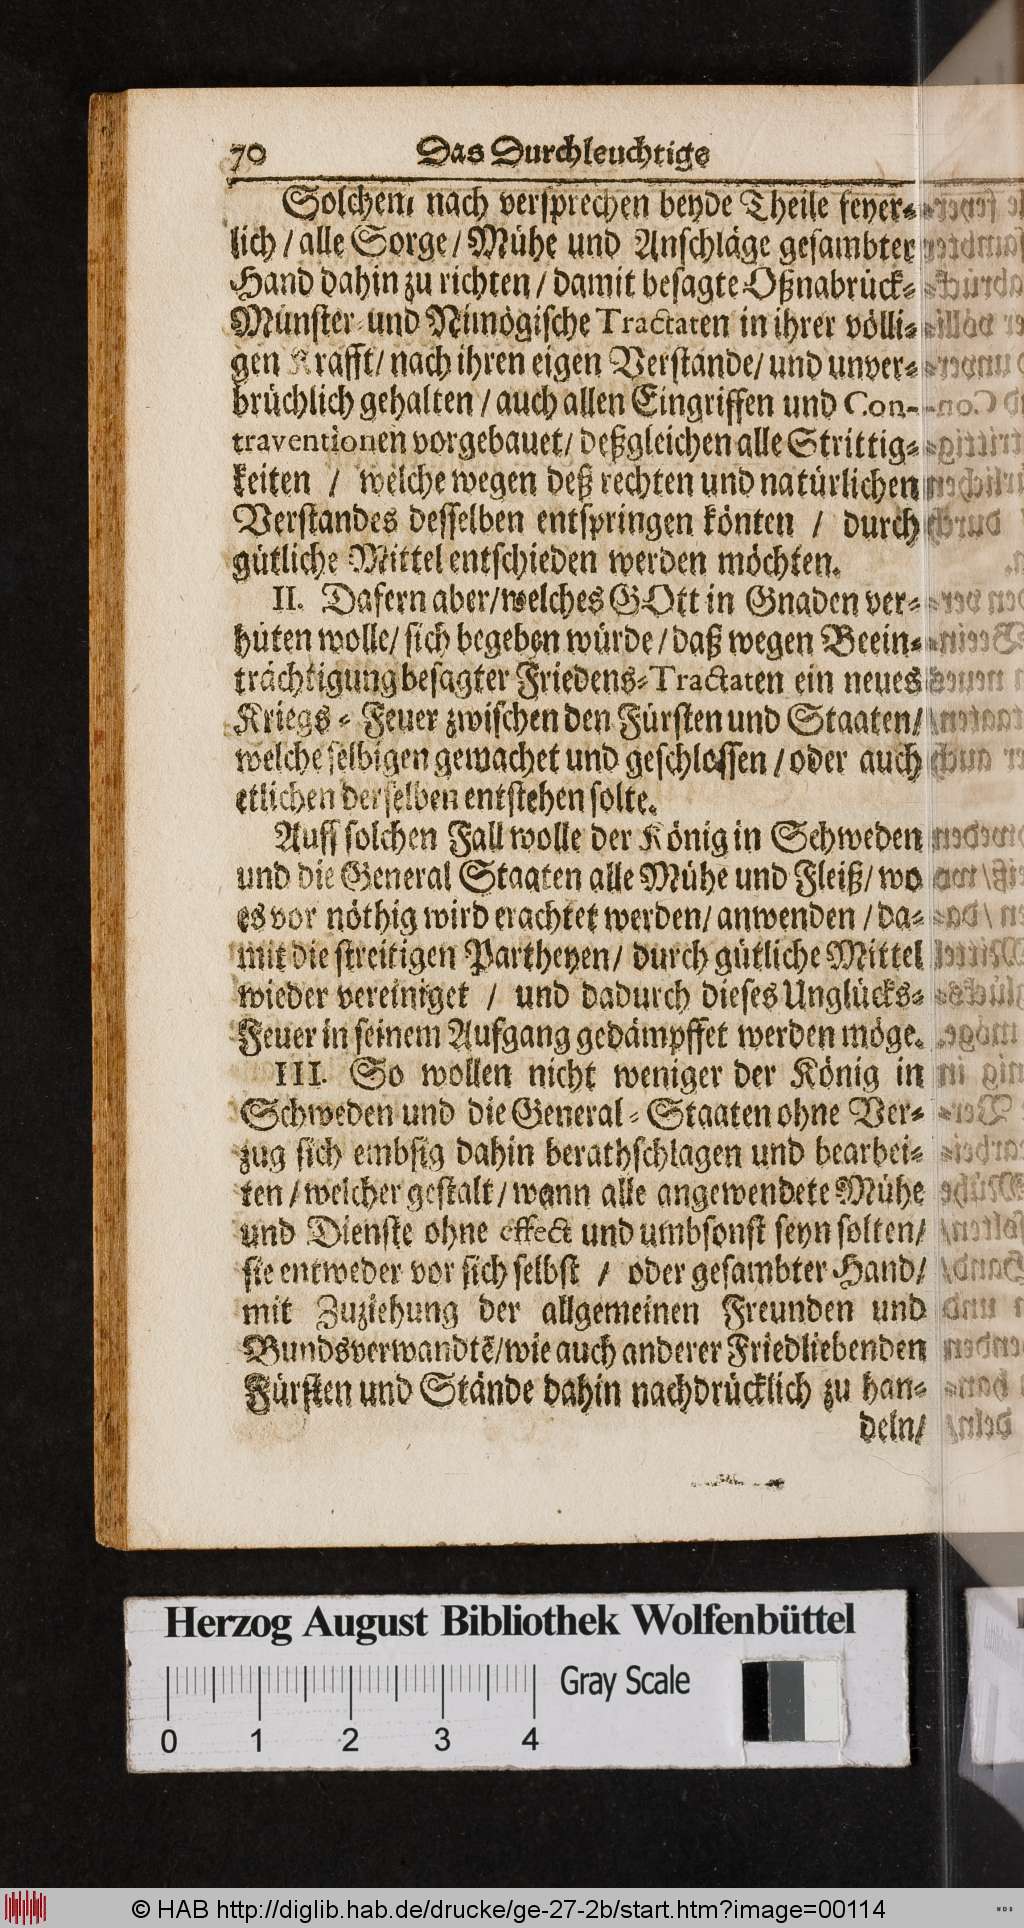 70 Das Durchleuchtige
Solchem nach versprechen beyde Theile feyer-
lich / alle Sorge / Mühe und Anschläge gesambter
Hand dahin zu richten / damit besagte Oßnabrück-
Münster- und Nimögische Tractaten in ihrer völli-
gen Krafft / nach ihren eigen Verstande / und unver-
brüchlich gehalten / auch allen Eingriffen und Con-
traventionen vorgebauet / deßgleichen alle Strittig-
keiten / welche wegen deß rechten und natürlichen
Verstandes desselben entspringen könten / durch
gütliche Mittel entschieden werden möchten.
II. Dafern aber / welches GOtt in Gnaden ver-
hüten wolle / sich begeben würde / daß wegen Beein-
trächtigung besagter Friedens-Tractaten ein neues
Kriegs-Feuer zwischen den Fürsten und Staaten /
welche selbigen gemachet und geschlossen / oder auch
etlichen derselben entstehen solte.
Auff solchen Fall wolle der König in Schweden
und die General Staaten alle Mühe und Fleiß / wo
es vor nöthig wird erachtet werden / anwenden / da-
mit die streitigen Partheyen / durch gütliche Mittel
wieder vereiniget / und dadurch dieses Unglücks-
Feuer in seinem Aufgang gedämpffet werden möge.
III. So wollen nicht weniger der König in
Schweden und die General-Staaten ohne Ver-
zug sich embsig dahin berathschlagen und bearbei-
ten / welcher gestalt / wann alle angewendete Mühe
und Dienste ohne effect und umbsonst seyn solten /
sie entweder vor sich selbst / oder gesambter Hand /
mit Zuziehung der allgemeinen Freunden und
Bundsverwandtē / wie auch anderer Friedliebenden
Fürsten und Stände dahin nachdrücklich zu han-
deln /
Herzog August Bibliothek Wolfenbüttel
Gray Scale
0 1 2 3 4
© HAB http://diglib.hab.de/drucke/ge-27-2b/start.htm?image=00114